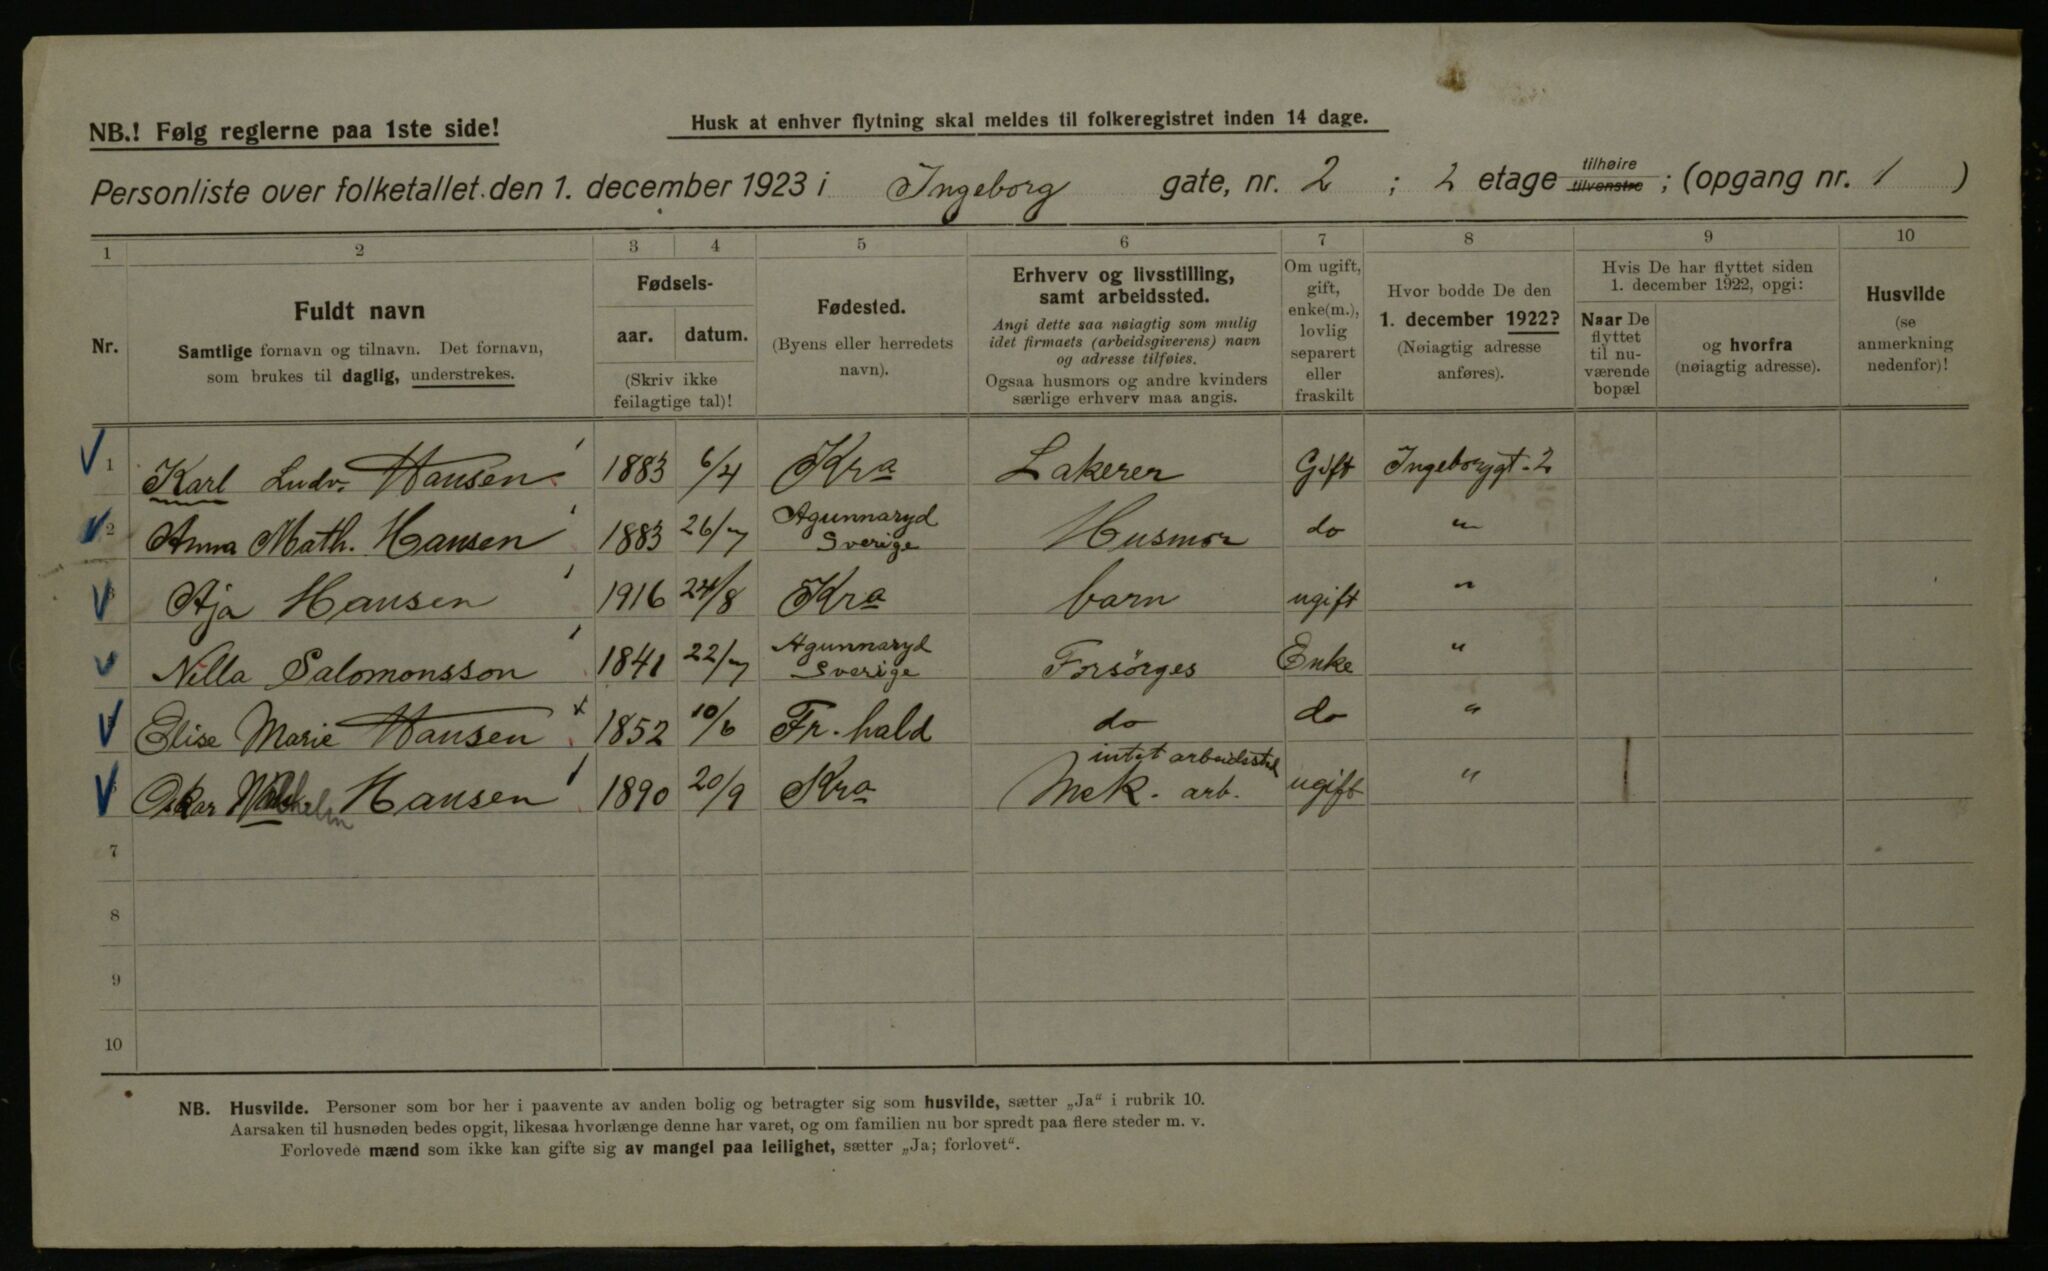 NB.! Følg reglerne paa 1ste side!
Husk at enhver flytning skal meldes til folkeregistret inden 14 dage.
Personliste over folketallet den 1. december 1923 i Ingeborg gate, nr. 2 ; 2 etage tilhøire tilvenstre ; (opgang nr. 1 )
1 2 3 4 5 6 7 8 9 10
Nr.
Fuldt navn
Samtlige fornavn og tilnavn. Det fornavn,
som brukes til daglig, understrekes.
Fødsels-
aar. datum.
(Skriv ikke
feilagtige tal)!
Fødested.
(Byens eller herredets
navn).
Erhverv og livsstilling,
samt arbeidssted.
Angi dette saa nøiagtig som mulig
idet firmaets (arbeidsgiverens) navn
og adresse tilføies.
Ogsaa husmors og andre kvinders
særlige erhverv maa angis.
Om ugift,
gift,
enke(m.),
lovlig
separert
eller
fraskilt
Hvor bodde De den
1. december 1922?
(Nøiagtig adresse
anføres).
Hvis De har flyttet siden
1. december 1922, opgi:
Naar De
flyttet
til nu-
værende
bopæl
og hvorfra
(nøiagtig adresse).
Husvilde
(se
anmerkning
nedenfor)!
1 Karl Ludv. Hansen 1883 6/4 Kra Lakerer Gift Ingeborggt. 2
2 Anna Math. Hansen 1883 26/7 Agunnaryd Sverige Husmor do "
3 Aja Hansen 1916 24/8 Kra barn ugift "
Nilla Salomonsson 1841 22/7 Agunnaryd Sverige Forsörges Enke "
Elise Marie Hansen 1852 10/6 Fr.hald do do "
Oskar Wilhelm Hansen 1890 20/9 Kra intet arbeidssted Mek. arb. ugift "
7
8
9
10
NB. Husvilde. Personer som bor her i paavente av anden bolig og betragter sig som husvilde, sætter „Ja" i rubrik 10.
Aarsaken til husnøden bedes opgit, likesaa hvorlænge denne har varet, og om familien nu bor spredt paa flere steder m. v.
Forlovede mænd som ikke kan gifte sig av mangel paa leilighet, sætter „Ja; forlovet".